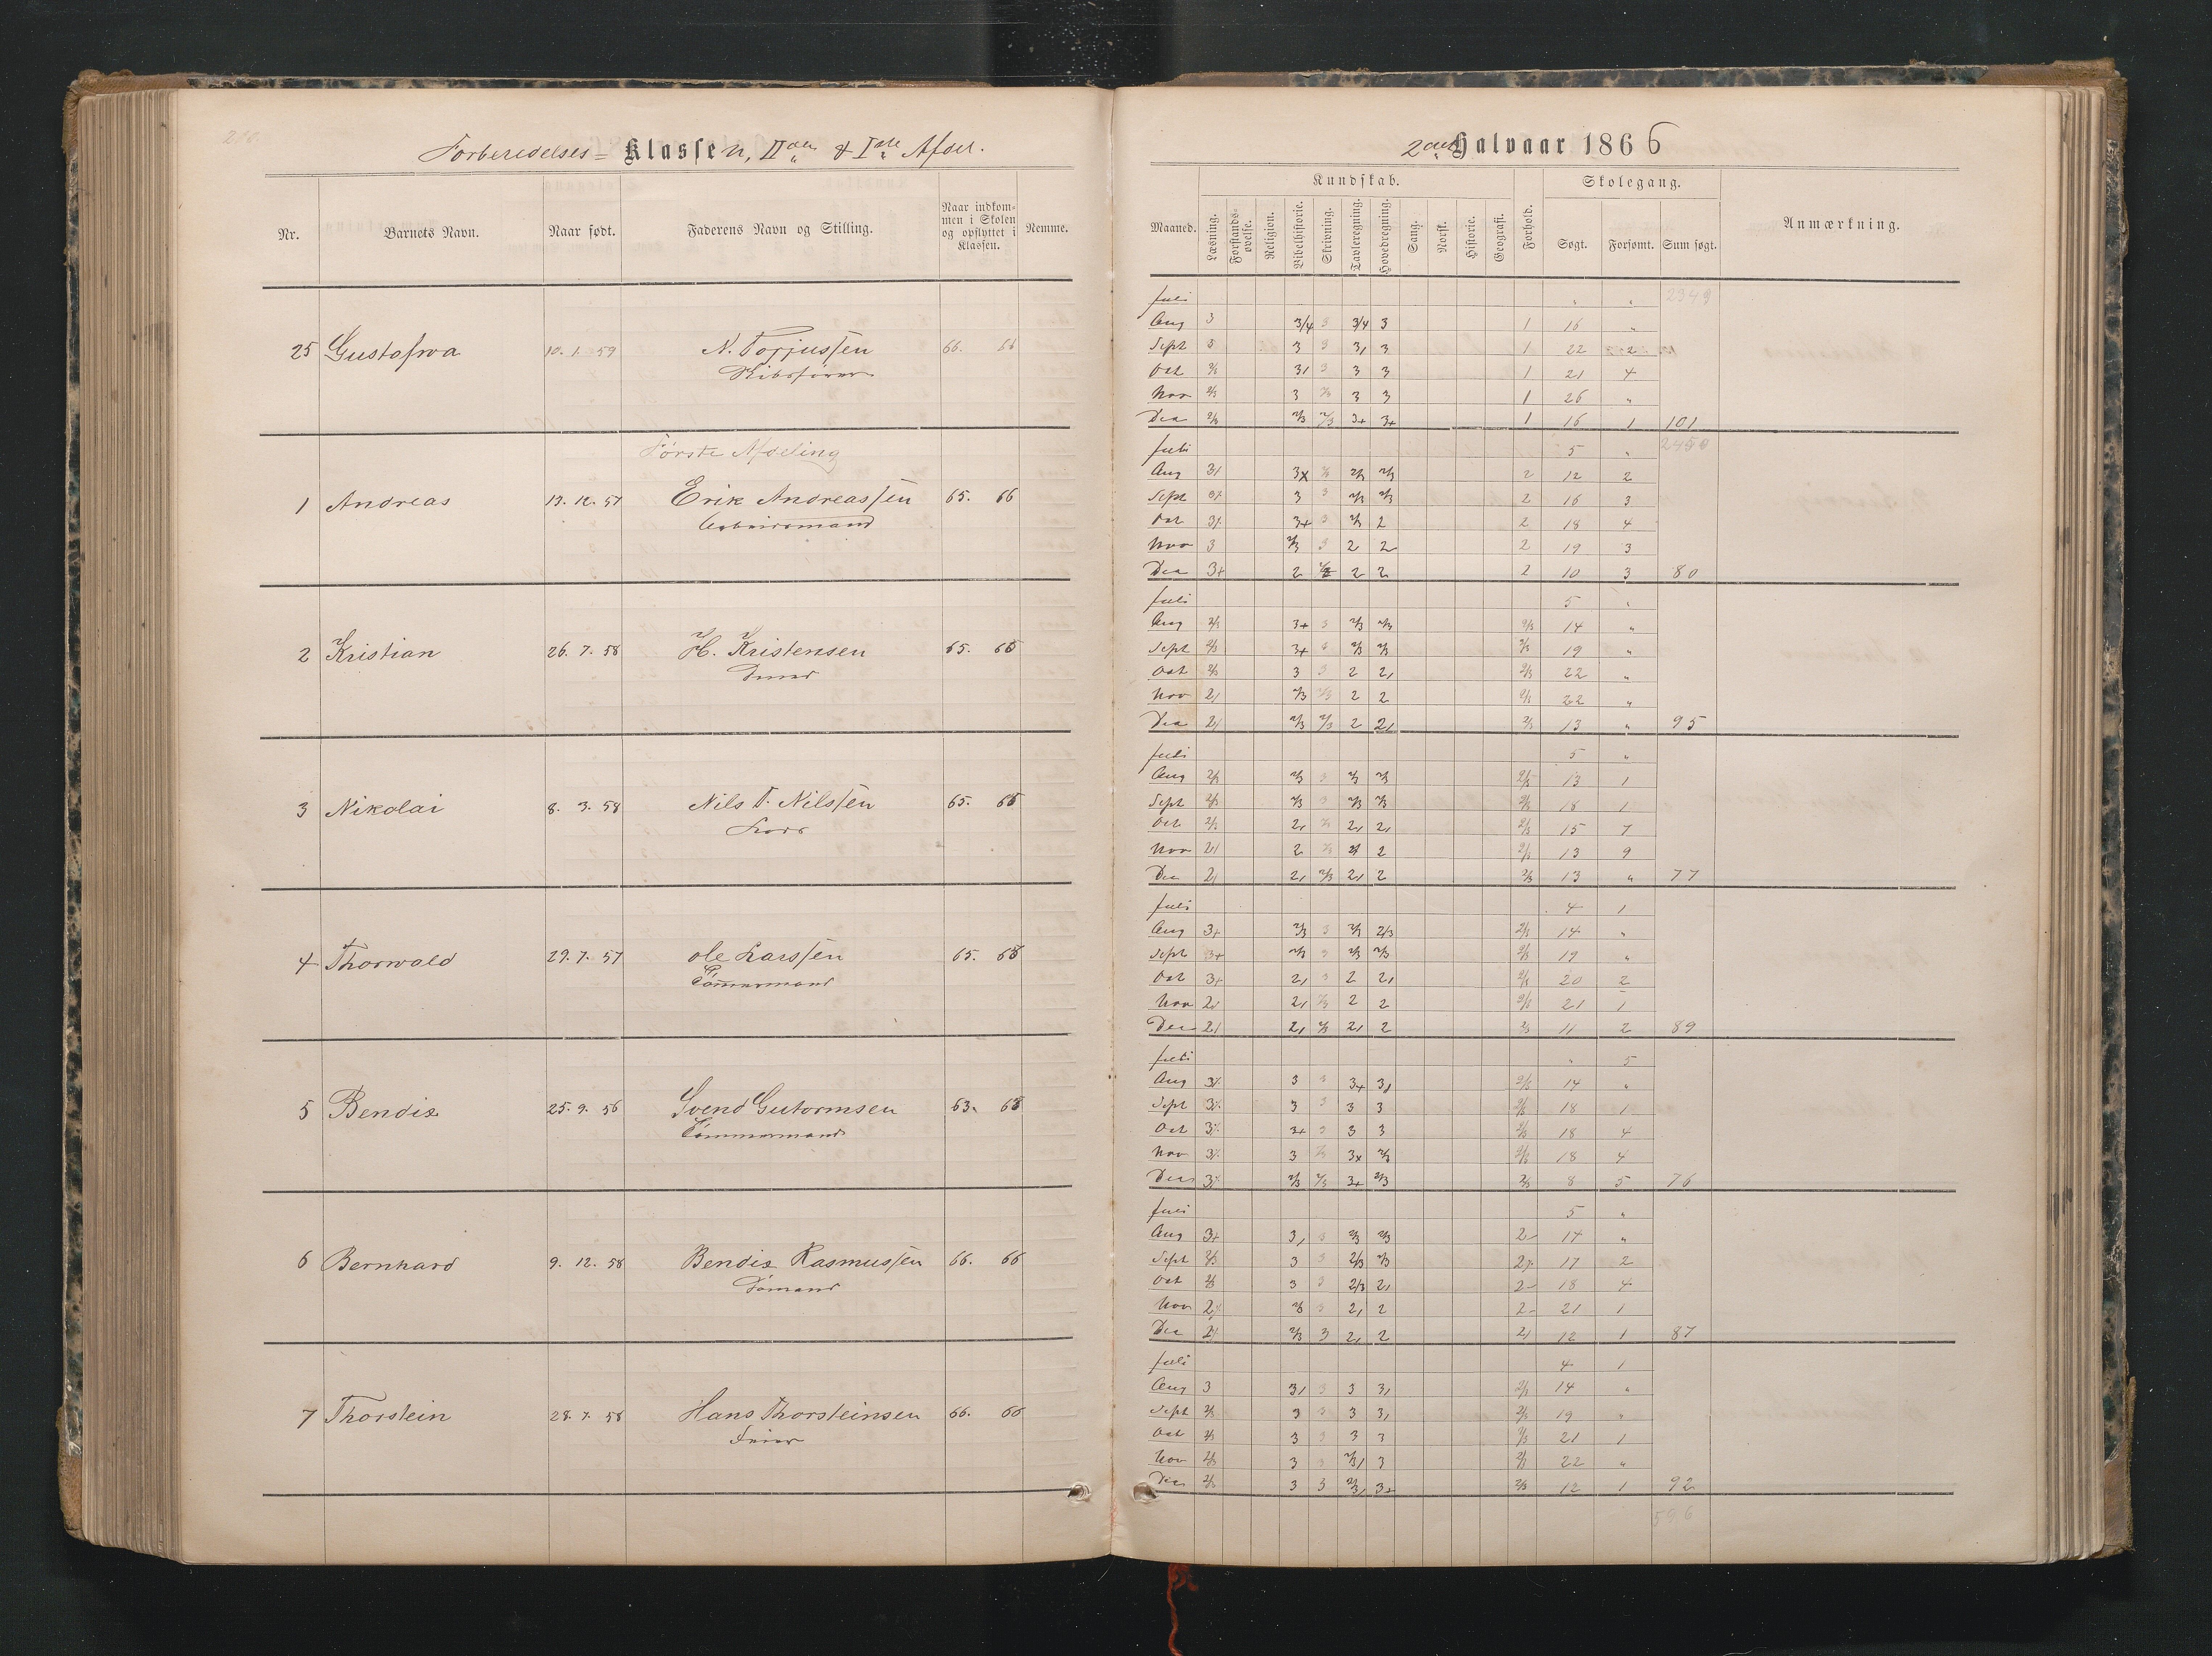 Forberedelses= Klassen, IIden & Iste Afdel.
2det Halvaar 1866
Nr. Barnets Navn. Naar født. Faderens Navn og Stilling. Naar indkommen i Skolen og opflyttet i Klassen. Nemme.
Maaned. Kundskab. Forhold. Skolegang. Anmærkning.
Læsning. Forstandsøvelse. Religion. Bibelhistorie. Skrivning. Tavleregning. Hovedregning. Sang. Norsk. Historie. Geografi. Søgt. Forsømt. Sum søgt.
25 Gustafwa 10. 1. 59 N. Torjussen 66. 66
Juli " " 2349
Aug 3 3/4 3 3/4 3 1 16 "
Sept 3 3 3 3, 3 1 22 2
Oct 2/3 3, 3 3 3 1 21 4
Nov 2/3 3 2/3 3 3 1 26 "
Dec 2/3 2/3 2/3 3+ 3+ 1 16 1 101
Første Afdeling
1 Andreas 13. 12. 57 Erik Andreassen 65. 66
Arbeidsmand
Juli 5 " 2450
Aug 3, 3x 2/3 2/3 2/3 2 12 2
Sept 3 3 2/3 2/3 2 16 3
Oct 3+ 3 2/3 2 2 18 4
Nov 3 2/3 3 2 2 2 19 3
Dec 3+ 2 2 2 2 10 3 80
2 Kristian 26. 7. 58 H. Kristensen 65. 65
Juli 5 "
Aug 2/3 3+ 3 2/3 2/3 2/3 14 "
Sept 2/3 3+ 3 2/3 2/3 2/3 19 "
Oct 2/3 3 3 2 2, 2/3 22 "
Nov 2, 2/3 2/3 2 2 2/3 22 "
Dec 2, 2/3 2/3 2 2, 2/3 13 " 95
3 Nikolai 8. 3. 58 Nils T. Nilssen 65. 65
Lods
Juli 5 "
Aug 2/3 2/3 3 2/3 2/3 2/3 13 1
Sept 2/3 2/3 3 2/3 2/3 2/3 18 1
Oct 2/3 2, 2/3 2, 2, 2/3 15 7
Nov 2, 2 2/3 2 2 2/3 13 9
Dec 2, 2, 2/3 2, 2 2/3 13 " 77
4 Thorwald 29. 7. 57 Ole Larssen 65. 65
Tömmermand
Juli 4 1
Aug 3+ 2/3 3 2/3 2/3 2/3 14 "
Sept 3+ 2/3 3 2/3 2/3 2/3 19 "
Oct 3+ 2, 3 2 2, 2/3 20 2
Nov 2, 2, 2/3 2 2 2/3 21 1
Dec 2, 2, 2/3 2, 2 2/3 11 2 89
5 Bendix 25. 9. 56 Svend Gutormsen 63. 63
Tömmermand
Juli " 5
Aug 3 3 3 3+ 3, 2/3 14 "
Sept 3 3 3 3 3 2/3 18 1
Oct 3 3+ 3 3 3 2/3 18 4
Nov 3 3 2/3 3x 2/3 2/3 18 4
Dec 3 2/3 2/3 3+ 2/3 2/3 8 5 76
6 Bernhard 9. 12. 58 Bendix Rasmussen 66. 66
Sömand
Juli 5 "
Aug 3+ 3, 3 2/3 2/3 2 14 "
Sept 2/3 3 3 2/3 2/3 2 17 2
Oct 2/3 3 3 2/3 2, 2 18 4
Nov 2 2/3 3 2, 2 2 21 1
Dec 2 2/3 3 2, 2 2, 12 1 87
7 Thorstein 28. 7. 58 Hans Thorsteinsen 66. 66
Juli 4 1
Aug 3 3, 3 3 3, 2/3 14 "
Sept 2/3 3 3 3 3, 2/3 19 "
Oct 2/3 3 3 3 3 2/3 21 1
Nov 2/3 3 3 2/3, 3 2/3 22 "
Dec 2/3 3 3 2/3, 3+ 2/3 12 1 92
596